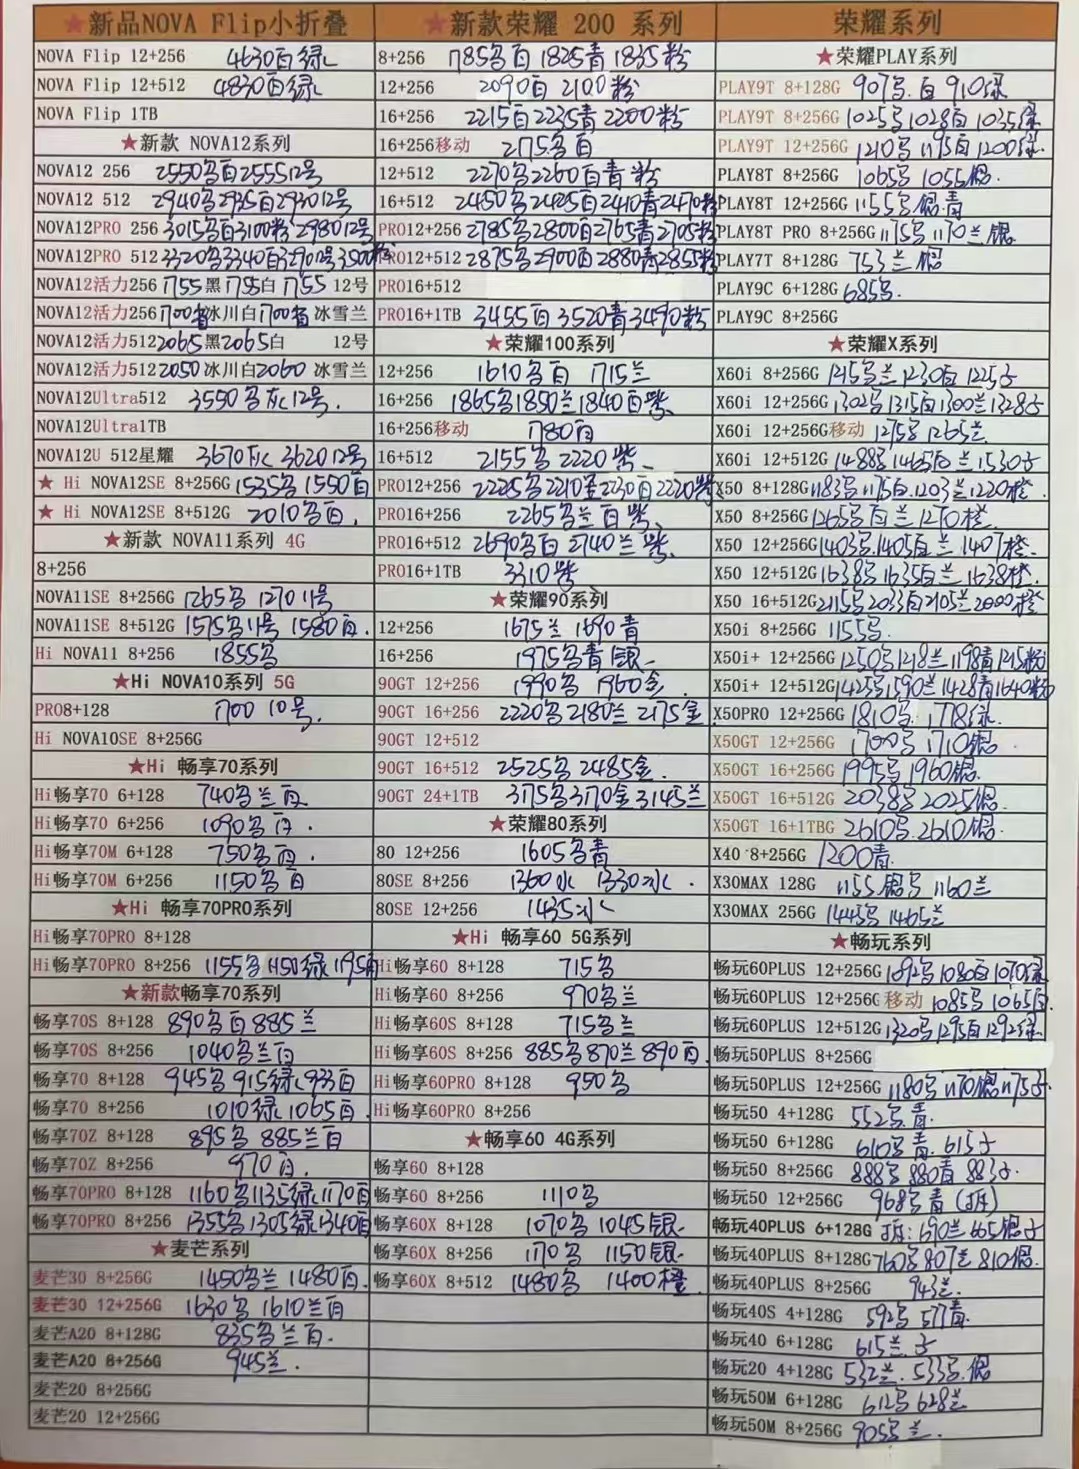 ★新品NOVA Flip小折叠
NOVA Flip 12+256 4630白绿
NOVA Flip 12+512 4830白绿
NOVA Flip 1TB
★新款 NOVA12系列
NOVA12 256 2550名白255512号
NOVA12 512 2940名2935白293012号
NOVA12PRO 256 3015名白3100粉298012号
NOVA12PRO 512 3320名3340白
NOVA12活力256 1755黑1755白1755 12号
NOVA12活力256 1700 冰川白1700 冰雪兰
NOVA12活力512 2065黑2065白 12号
NOVA12活力512 2050冰川白2060 冰雪兰
NOVA12Ultra512 3550名灰12号.
NOVA12Ultra1TB
NOVA12U 512星耀 3670灰 362012号
★ Hi NOVA12SE 8+256G 1535名1550白
★ Hi NOVA12SE 8+512G 2010名白.
★新款 NOVA11系列 4G
8+256
NOVA11SE 8+256G 1265名 1270 11号
NOVA11SE 8+512G 1575名11号 1580白.
Hi NOVA11 8+256 1855名
★Hi NOVA10系列 5G
PRO8+128 1700 10号.
Hi NOVA10SE 8+256G
★Hi 畅享70系列
Hi畅享70 6+128 740名兰白
Hi畅享70 6+256 1090名白.
Hi畅享70M 6+128 750名白.
Hi畅享70M 6+256 1150名白
★Hi 畅享70PRO系列
Hi畅享70PRO 8+128
Hi畅享70PRO 8+256 1155名1150绿1195白
★新款畅享70系列
畅享70S 8+128 890名白885兰
畅享70S 8+256 1040名兰白
畅享70 8+128 945名915绿933白
畅享70 8+256 1010绿1065白
畅享70Z 8+128 895名 885兰白
畅享70Z 8+256 970白.
畅享70PRO 8+128 1160名1135绿1170白
畅享70PRO 8+256 1355名1305绿1340白
★麦芒系列
麦芒30 8+256G 1450名兰1480白.
麦芒30 12+256G 1630名1610兰白
麦芒A20 8+128G 835名兰白.
麦芒A20 8+256G 945兰.
麦芒20 8+256G
麦芒20 12+256G
★新款荣耀 200 系列
8+256 1785名白1825青1835粉
12+256 2090白 2100粉
16+256 2215白2235青2200粉
16+256移动 2175名白
12+512 2270名2260白青粉
16+512 2450名2425白2410青2470粉
PRO12+256 2785名2800白2765青2705粉
PRO12+512 2875名2900白2880青2855粉
PRO16+512
PRO16+1TB 3455白3520青3490粉
★荣耀100系列
12+256 1610名白 1715兰
16+256 1865名1850兰1840白紫
16+256移动 1780白
16+512 2155名 2220紫
PRO12+256 2225名2210金2230白2220紫
PRO16+256 2265名兰白紫
PRO16+512 2690名白 2740兰紫
PRO16+1TB 3310紫
★荣耀90系列
12+256 1675兰 1690青
16+256 1975名青银
90GT 12+256 1990名 1960金.
90GT 16+256 2220名2180兰2175金
90GT 12+512
90GT 16+512 2525名2485金.
90GT 24+1TB 3175名3170金3145兰
★荣耀80系列
80 12+256 1605名青
80SE 8+256 1360冰 1330冰.
80SE 12+256 1435冰
★Hi 畅享60 5G系列
Hi畅享60 8+128 715名
Hi畅享60 8+256 970名兰
Hi畅享60S 8+128 715名兰
Hi畅享60S 8+256 885名870兰890白.
Hi畅享60PRO 8+128 950名
Hi畅享60PRO 8+256
★畅享60 4G系列
畅享60 8+128
畅享60 8+256 1110名
畅享60X 8+128 1070名 1045银
畅享60X 8+256 1170名 1150银
畅享60X 8+512 1480名 1400橙
荣耀系列
★荣耀PLAY系列
PLAY9T 8+128G 907名.白910绿
PLAY9T 8+256G 1025名1028白1035绿
PLAY9T 12+256G 1210名1195白1200绿.
PLAY8T 8+256G 1065名1055银.
PLAY8T 12+256G 1155名银青
PLAY8T PRO 8+256G 1175名1170兰银
PLAY7T 8+128G 753兰银
PLAY9C 6+128G 685名.
PLAY9C 8+256G
★荣耀X系列
X60i 8+256G 1215名兰1230白1225子
X60i 12+256G 1302名1315白1300兰1328子
X60i 12+256G移动 1275名1265兰.
X60i 12+512G 1488名1465白兰1530子
X50 8+128G 1183名1175白.1203兰1220橙.
X50 8+256G 1265名白兰1270橙.
X50 12+256G 1403名.1405白兰1407橙.
X50 12+512G 1638名1635白兰1638橙.
X50 16+512G 2115名2033白2105兰2000橙
X50i 8+256G 1155名.
X50i+ 12+256G 1250名1218兰1198青1215粉
X50i+ 12+512G 1425名1590兰1428青1640粉
X50PRO 12+256G 1810名.1778绿.
X50GT 12+256G 1700名1710银.
X50GT 16+256G 1995名1960银.
X50GT 16+512G 2038名2025银.
X50GT 16+1TBG 2610名.2610银.
X40 8+256G 1200青.
X30MAX 128G 1155银名1160兰
X30MAX 256G 1445名1465兰
★畅玩系列
畅玩60PLUS 12+256G 1092名1080白1070绿
畅玩60PLUS 12+256G 移动 1085名1065白.
畅玩60PLUS 12+512G 1320名1295白1292绿.
畅玩50PLUS 8+256G
畅玩50PLUS 12+256G 1180名1170银1175子
畅玩50 4+128G 552名.青.
畅玩50 6+128G 610名青.615子
畅玩50 8+256G 888名880青883子.
畅玩50 12+256G 968名青
畅玩40PLUS 6+128G 690兰665银子
畅玩40PLUS 8+128G 760名807兰810银.
畅玩40PLUS 8+256G 943兰.
畅玩40S 4+128G 592名577青.
畅玩40 6+128G 615兰.子
畅玩20 4+128G 532兰.533名.银
畅玩50M 6+128G 612名628兰
畅玩50M 8+256G 905名兰.